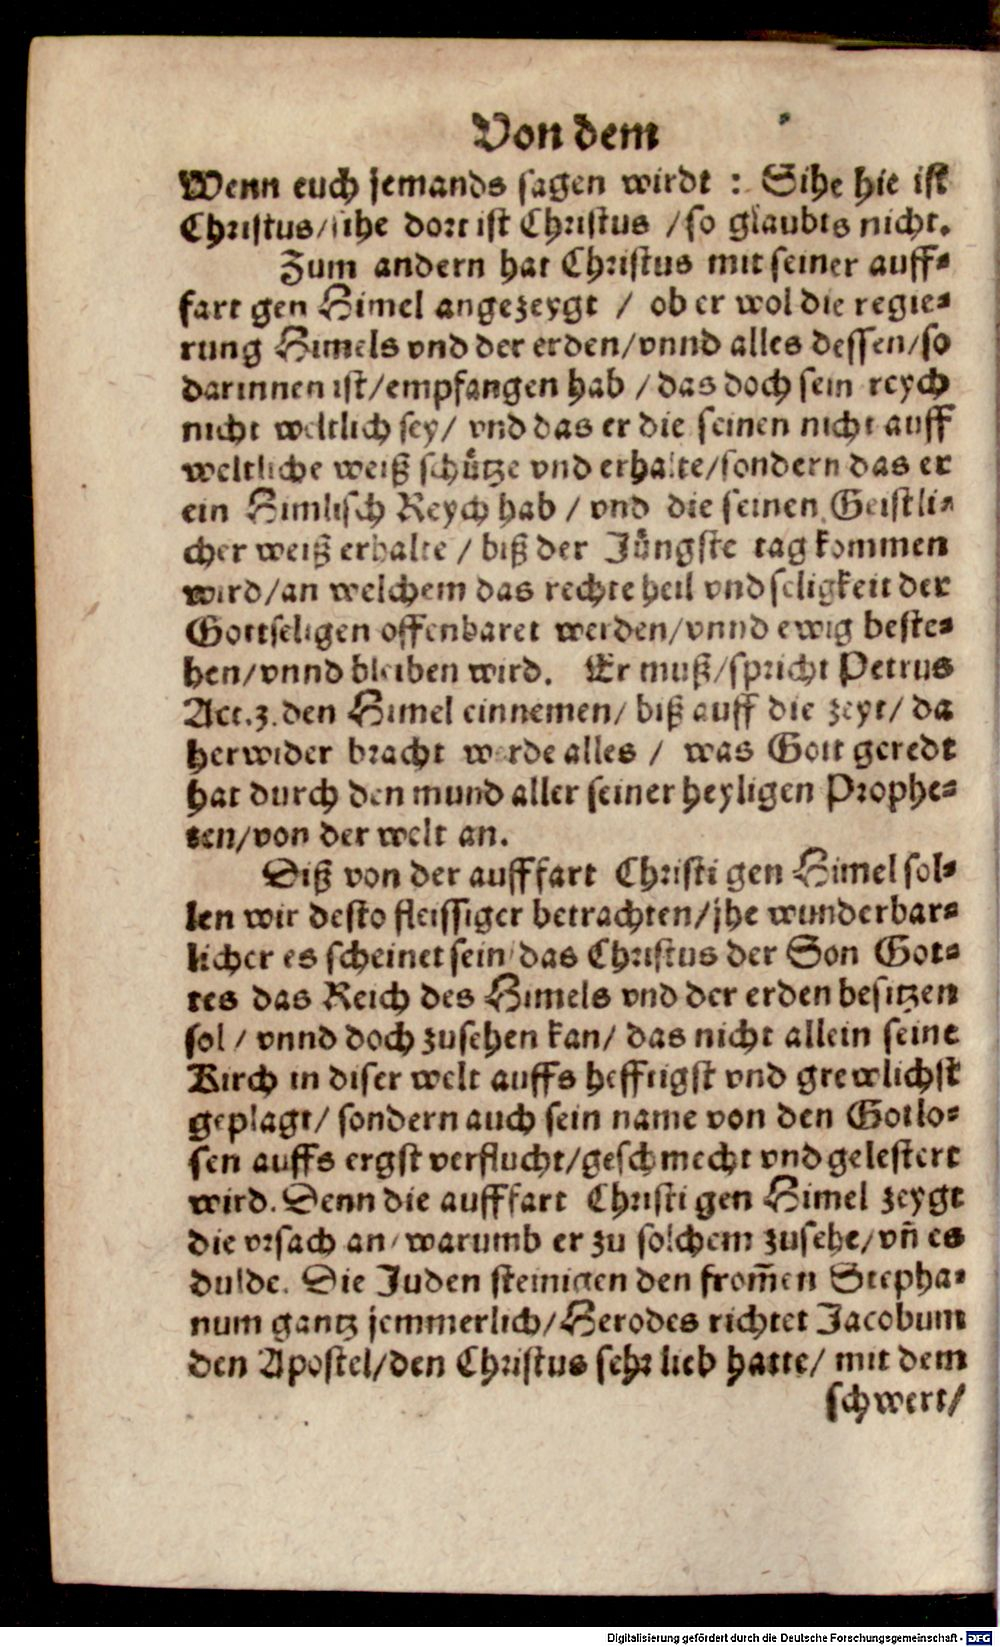 Von dem
Wenn euch jemands sagen wirdt : Sihe hie ist
Christus/sihe dort ist Christus /so glaubts nicht.
Zum andern hat Christus mit seiner auff-
fart gen Himel angezeygt / ob er wol die regie-
rung Himels vnd der erden/vnnd alles dessen/so
darinnen ist/empfangen hab /das doch sein reych
nicht weltlich sey/ vnd das er die seinen nicht auff
weltliche weiß schuͤtze vnd erhalte/sondern das er
ein Himlisch Reych hab / vnd die seinen Geistli-
cher weiß erhalte / biß der Juͤngste tag kommen
wird/an welchem das rechte heil vnd seligkeit der
Gottseligen offenbaret werden/vnnd ewig beste-
hen/vnnd bleiben wird. Er muß/spricht Petrus
Act.3. den Himel einnemen/ biß auff die zeyt/ da
herwider bracht werde alles / was Gott geredt
hat durch den mund aller seiner heyligen Prophe-
ten/von der welt an.
Diß von der aufffart Christi gen Himel sol-
len wir desto fleissiger betrachten/jhe wunderbar-
licher es scheinet sein/das Christus der Son Got-
tes das Reich des Himels vnd der erden besitzen
sol / vnnd doch zusehen kan/ das nicht allein seine
Kirch in diser welt auffs hefftigst vnd grewlichst
geplagt/ sondern auch sein name von den Gotlo-
sen auffs ergst verflucht/geschmecht vnd gelestert
wird. Denn die aufffart Christi gen Himel zeygt
die vrsach an/warumb er zu solchem zusehe/vn̄ es
dulde. Die Juden steinigen den from̄en Stepha-
num gantz jemmerlich/Herodes richtet Jacobum
den Apostel/den Christus sehr lieb hatte/ mit dem
schwert/
Digitalisierung gefördert durch die Deutsche Forschungsgemeinschaft - DFG